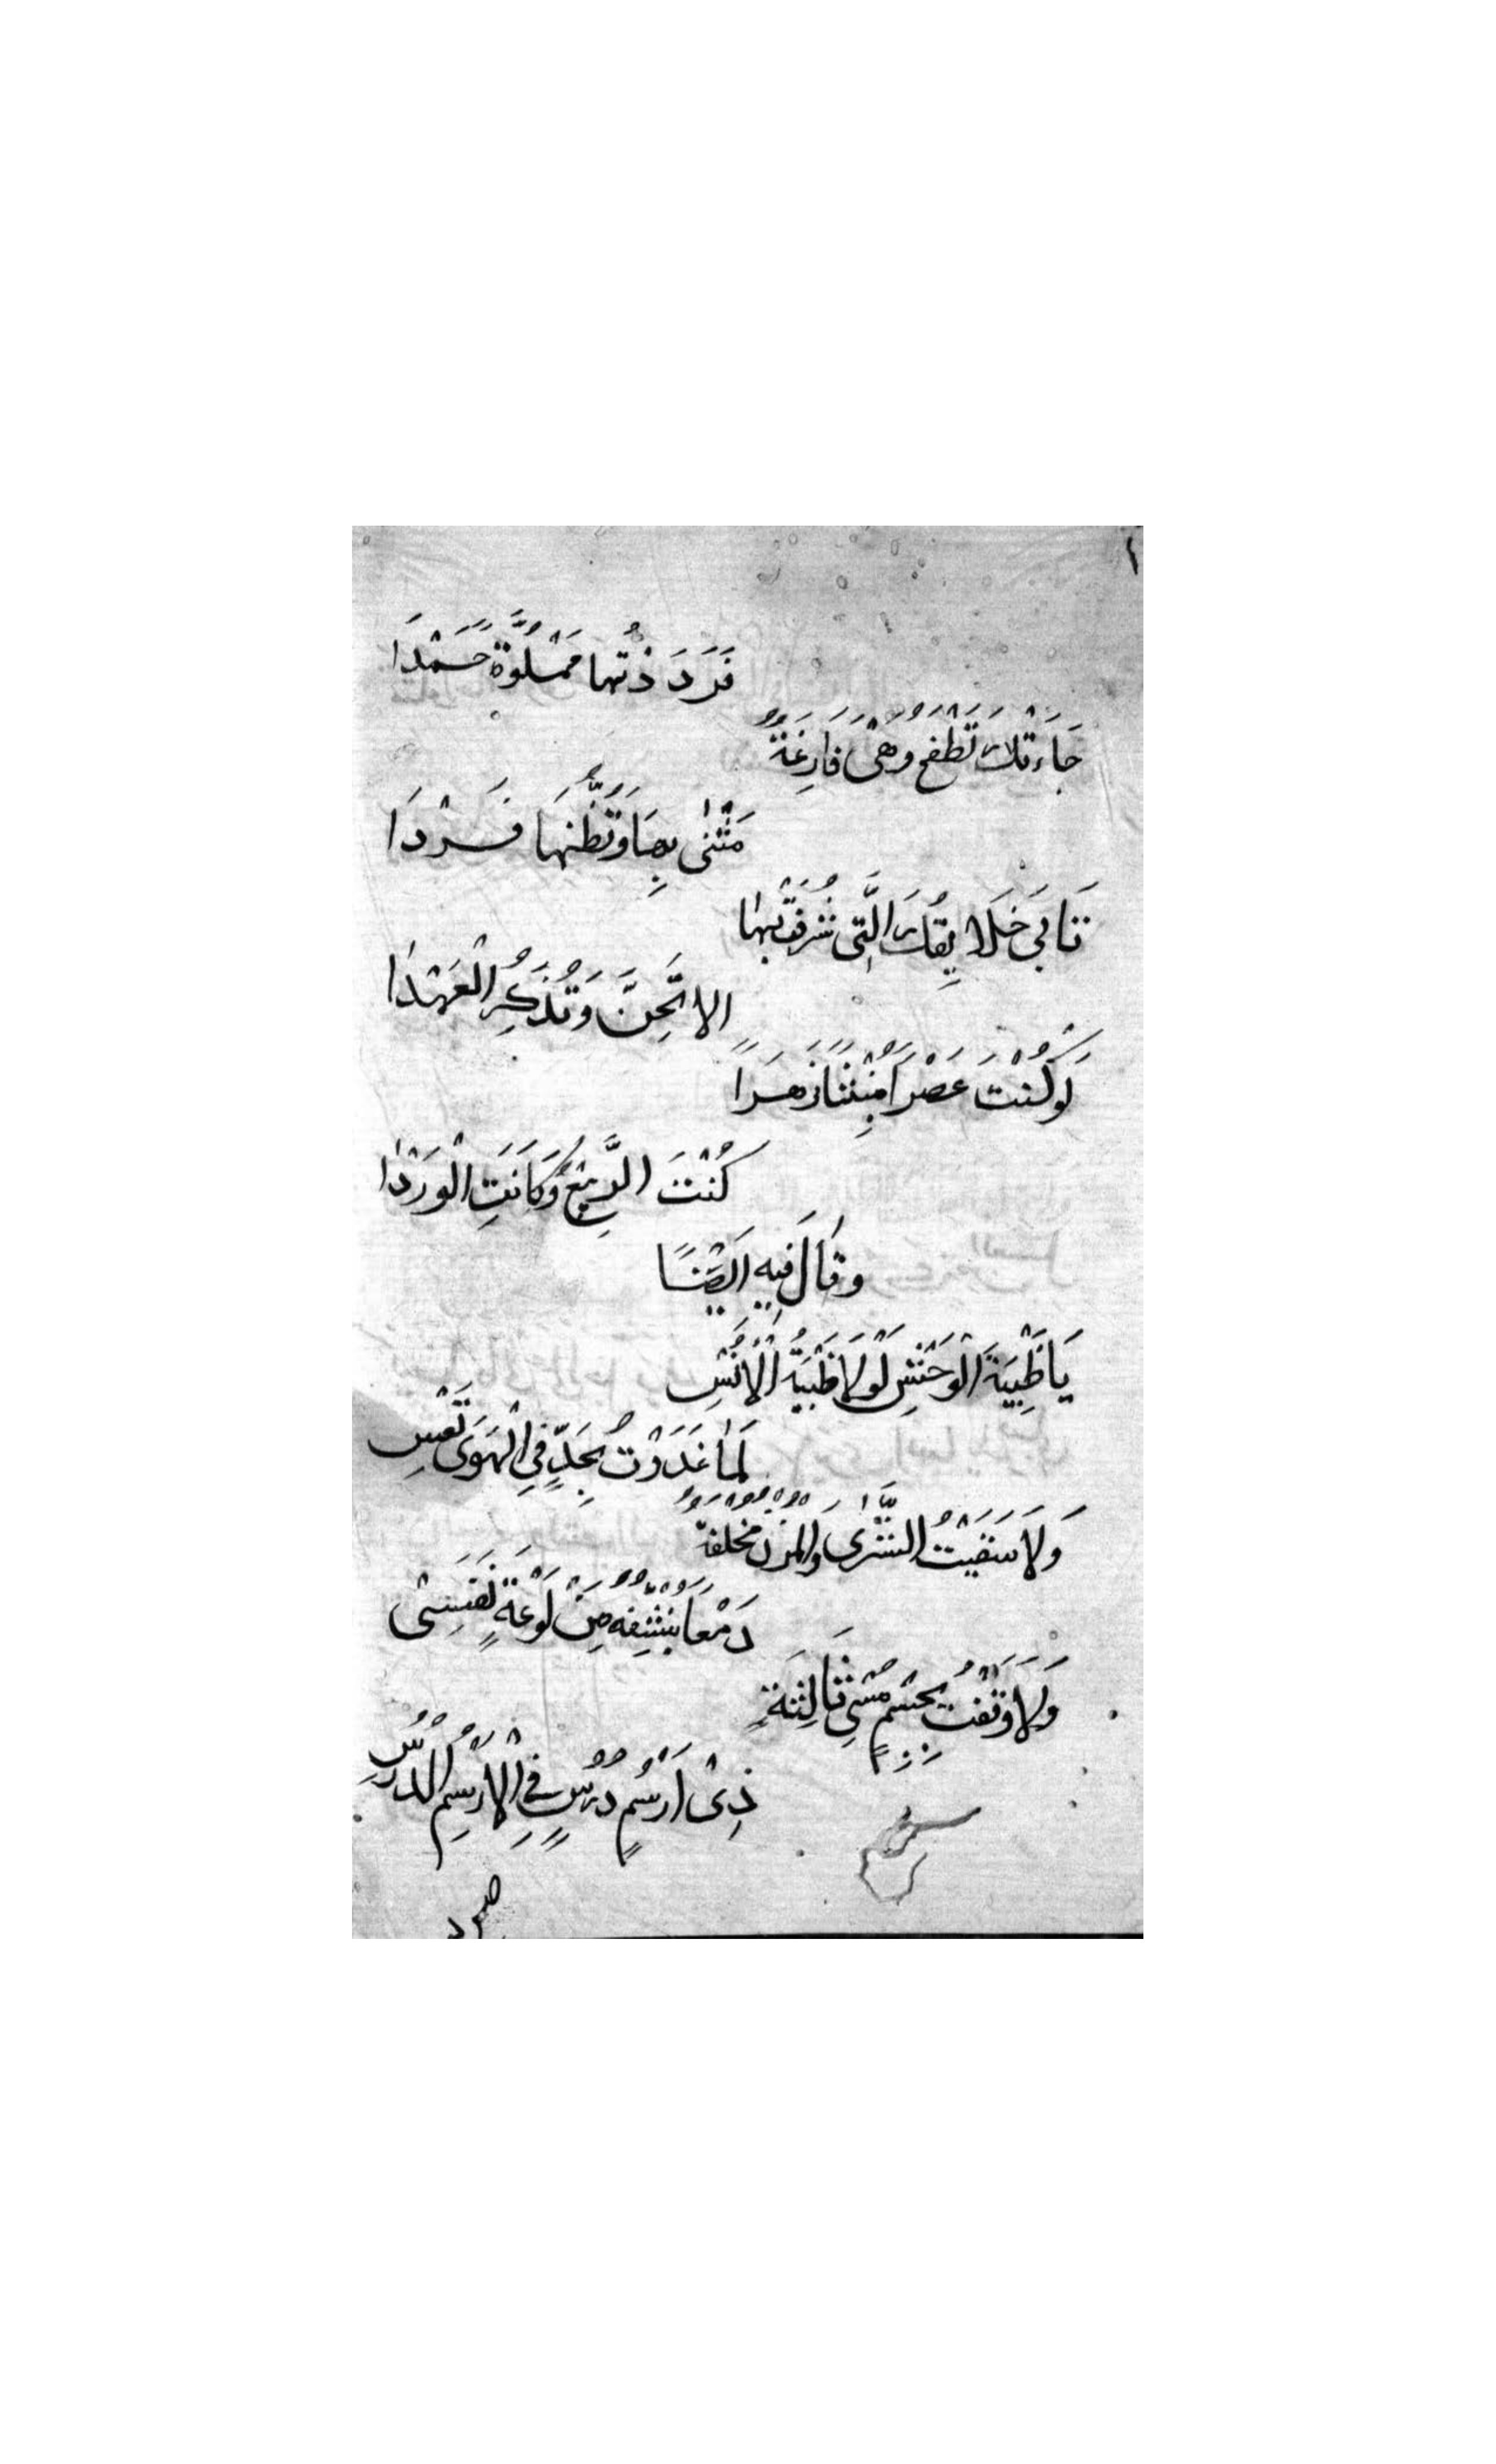 ١
فَرَدَدْتُها مَمْلُوَّةً حَمْدَا
جَاءَتْكَ تَطْفَحُ وَهْيَ فَارِغَةٌ
مَثْنٰى بِهَا وَتَظُنُّهَا فَرْدَا
تَأبَى خَلَايِقُكَ الَّتِي شَرُفَتْ بِهَا
الا تَحِنَّ وَتَذْكُرَ الْعَهْدَا
لَوْ كُنْتَ عَصْرًا مُنْبِتًا زَهَرًا
كُنْتَ الرَّبِيْعَ وَكَانَتِ الْوَرْدَا
وقَالَ فِيهِ ايْضًا
يَا ظَبْيَةَ الْوَحْشِ لَوْلَا ظَبْيَةُ الْأَنَسِ
لَمَا غَدَوْتُ بِجَدٍّ فِي الْهَوَى تَعِسِ
وَلَا سَقَيْتُ الثَّرَى وَالْمُزْنُ مُخْلِفَةٌ
دَمْعًا يُنَشِّفُهُ مِنْ لَوْعَةٍ نَفَسِى
وَلَا وَقَفْتُ بِجِسْمٍ مُسْيَ ثَالِثَةٍ
ذِىْ اَرْسُمٍ دُرُسٍ فِي الْاَرْسُمِ الدُّرُسِ